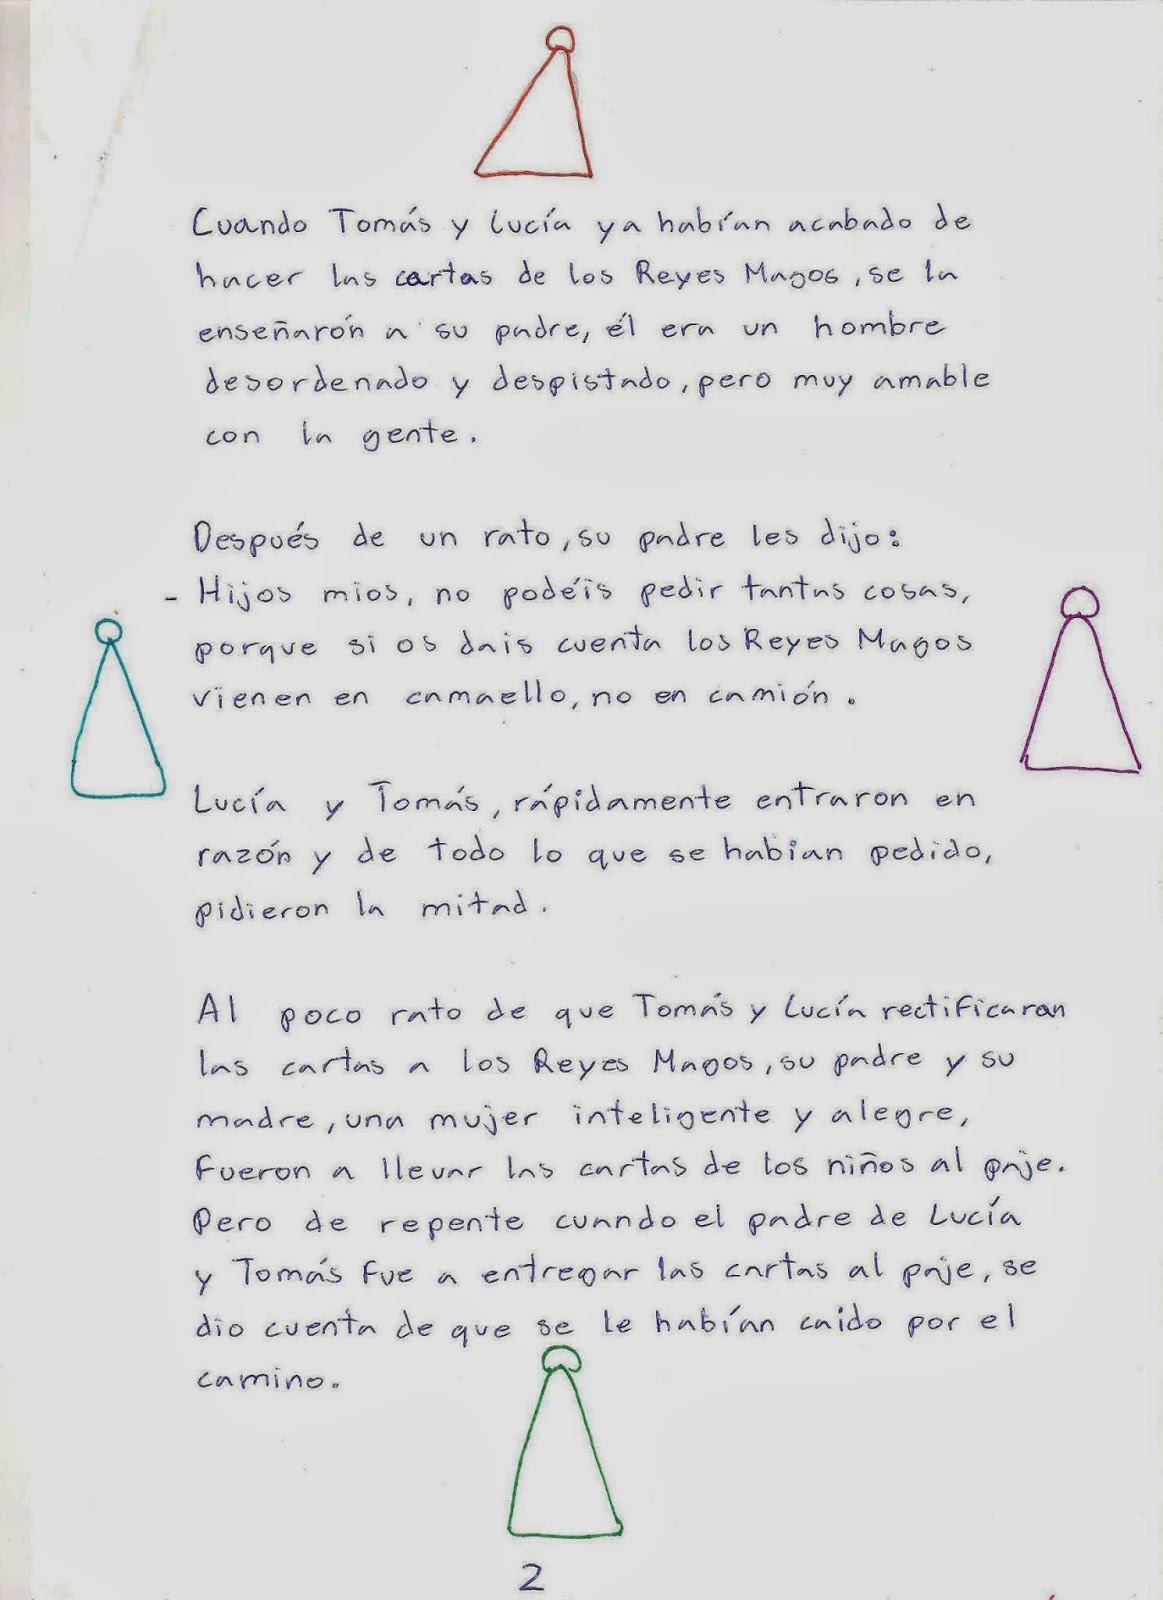 Cuando Tomás y Lucía ya habían acabado de
hacer las cartas de los Reyes Magos, se la
enseñarón a su padre, él era un hombre
desordenado y despistado, pero muy amable
con la gente.
Después de un rato, su padre les dijo:
- Hijos mios, no podéis pedir tantas cosas,
porque si os dais cuenta los Reyes Magos
vienen en camaello, no en camión.
Lucía y Tomás, rápidamente entraron en
razón y de todo lo que se habían pedido,
pidieron la mitad.
Al poco rato de que Tomás y Lucía rectificaran
las cartas a los Reyes Magos, su padre y su
madre, una mujer inteligente y alegre,
fueron a llevar las cartas de los niños al paje.
Pero de repente cuando el padre de Lucía
y Tomás fue a entregar las cartas al paje, se
dio cuenta de que se le habían caido por el
camino.
2